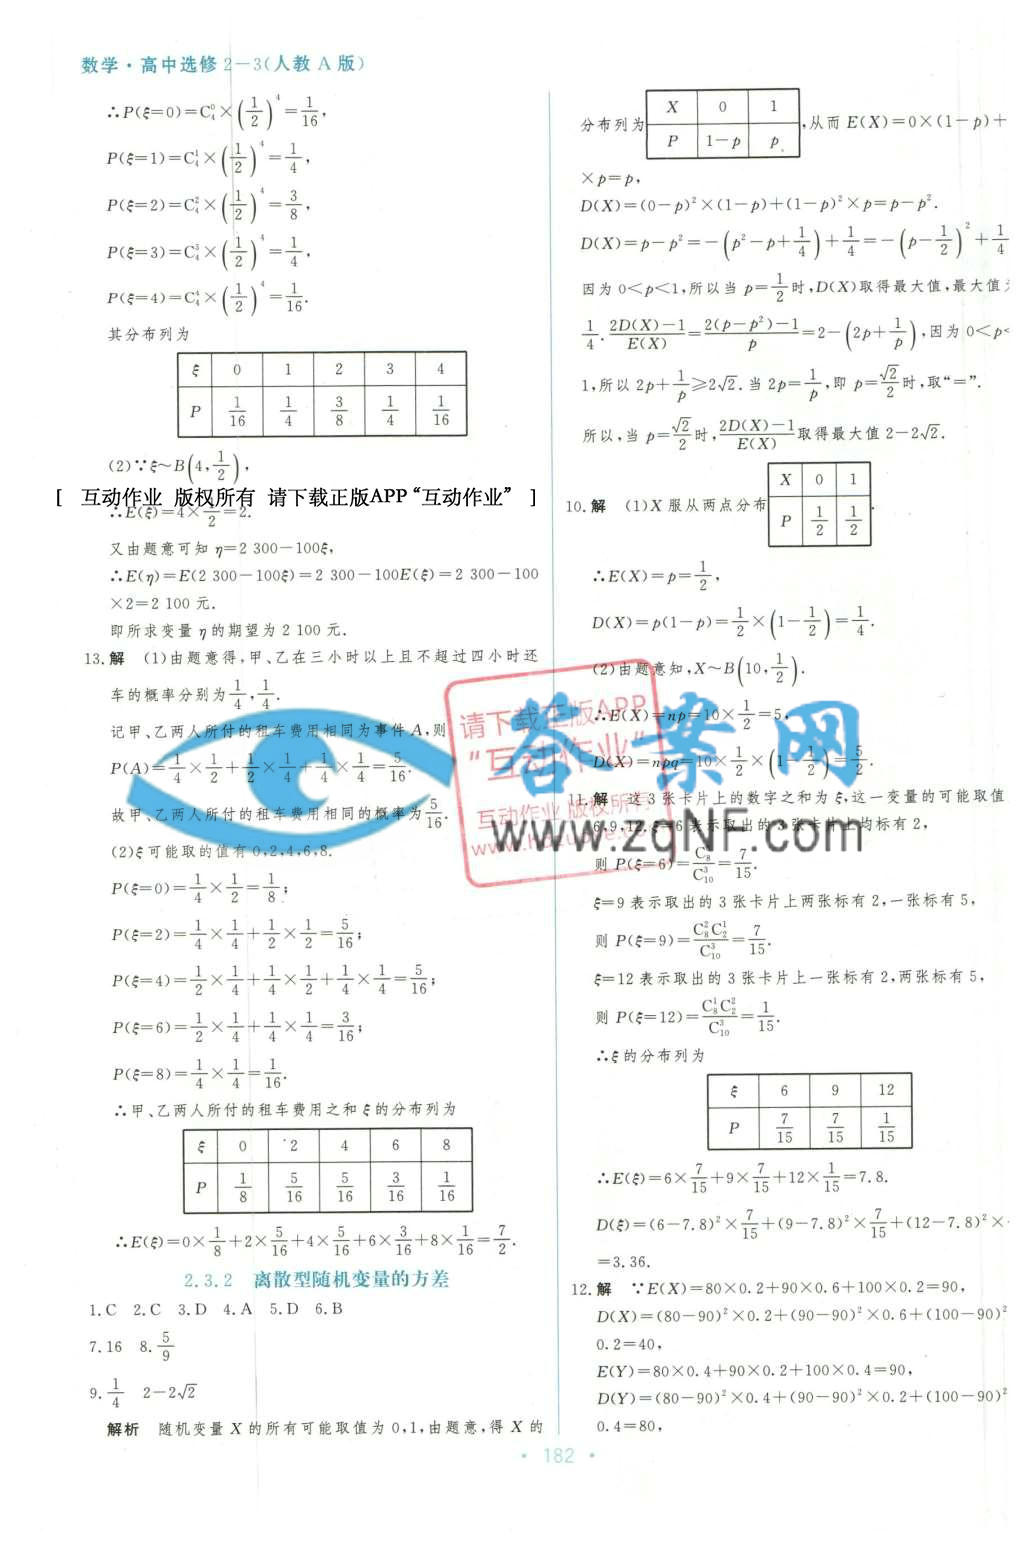 数学·高中选修2-3(人教A版)
∴P(ξ=0)=C₄⁰×(1/2)⁴=1/16,
P(ξ=1)=C₄¹×(1/2)⁴=1/4,
P(ξ=2)=C₄²×(1/2)⁴=3/8,
P(ξ=3)=C₄³×(1/2)⁴=1/4,
P(ξ=4)=C₄⁴×(1/2)⁴=1/16.
其分布列为
ξ 0 1 2 3 4
P 1/16 1/4 3/8 1/4 1/16
(2)∵ξ~B(4,1/2),
[ 互动作业 版权所有 请下载正版APP“互动作业” ]
∴E(ξ)=4×1/2=2.
又由题意可知η=2 300-100ξ,
∴E(η)=E(2 300-100ξ)=2 300-100E(ξ)=2 300-100
×2=2 100元.
即所求变量η的期望为2 100元.
13.解 (1)由题意得,甲、乙在三小时以上且不超过四小时还
车的概率分别为1/4,1/4.
记甲、乙两人所付的租车费用相同为事件A,则
P(A)=1/4×1/2+1/2×1/4+1/4×1/4=5/16.
故甲、乙两人所付的租车费用相同的概率为5/16.
(2)ξ可能取的值有0,2,4,6,8.
P(ξ=0)=1/4×1/2=1/8;
P(ξ=2)=1/4×1/4+1/2×1/2=5/16;
P(ξ=4)=1/2×1/4+1/4×1/2+1/4×1/4=5/16;
P(ξ=6)=1/2×1/4+1/4×1/4=3/16;
P(ξ=8)=1/4×1/4=1/16.
∴甲、乙两人所付的租车费用之和ξ的分布列为
ξ 0 2 4 6 8
P 1/8 5/16 5/16 3/16 1/16
∴E(ξ)=0×1/8+2×5/16+4×5/16+6×3/16+8×1/16=7/2.
2.3.2 离散型随机变量的方差
1.C 2.C 3.D 4.A 5.D 6.B
7.16 8.5/9
9.1/4 2-2√2
解析 随机变量X的所有可能取值为0,1,由题意,得X的
分布列为
X 0 1
P 1-p p
,从而E(X)=0×(1-p)+
×p=p,
D(X)=(0-p)²×(1-p)+(1-p)²×p=p-p².
D(X)=p-p²=-(p²-p+1/4)+1/4=-(p-1/2)²+1/4
因为0<p<1,所以当p=1/2时,D(X)取得最大值,最大值
1/4.2D(X)-1/E(X)=2(p-p²)-1/p=2-(2p+1/p),因为0<p<
1,所以2p+1/p≥2√2.当2p=1/p,即p=√2/2时,取“=”.
所以,当p=√2/2时,2D(X)-1/E(X)取得最大值2-2√2.
10.解 (1)X服从两点分布
X 0 1
P 1/2 1/2
.
∴E(X)=p=1/2,
D(X)=p(1-p)=1/2×(1-1/2)=1/4.
(2)由题意知,X~B(10,1/2).
∴E(X)=np=10×1/2=5,
D(X)=npq=10×1/2×(1-1/2)=5/2.
11.解 这3张卡片上的数字之和为ξ,这一变量的可能取值
6,9,12.ξ=6表示取出的3张卡片上均标有2,
则P(ξ=6)=C₈³/C₁₀³=7/15.
ξ=9表示取出的3张卡片上两张标有2,一张标有5,
则P(ξ=9)=C₈²C₂¹/C₁₀³=7/15.
ξ=12表示取出的3张卡片上一张标有2,两张标有5,
则P(ξ=12)=C₈¹C₂²/C₁₀³=1/15.
∴ξ的分布列为
ξ 6 9 12
P 7/15 7/15 1/15
∴E(ξ)=6×7/15+9×7/15+12×1/15=7.8.
D(ξ)=(6-7.8)²×7/15+(9-7.8)²×7/15+(12-7.8)²×
=3.36.
12.解 ∵E(X)=80×0.2+90×0.6+100×0.2=90,
D(X)=(80-90)²×0.2+(90-90)²×0.6+(100-90)²
0.2=40,
E(Y)=80×0.4+90×0.2+100×0.4=90,
D(Y)=(80-90)²×0.4+(90-90)²×0.2+(100-90)²
0.4=80,
·182·
请下载正版APP
“互动作业”
互动作业 版权所有
答案网
www.zqNF.com